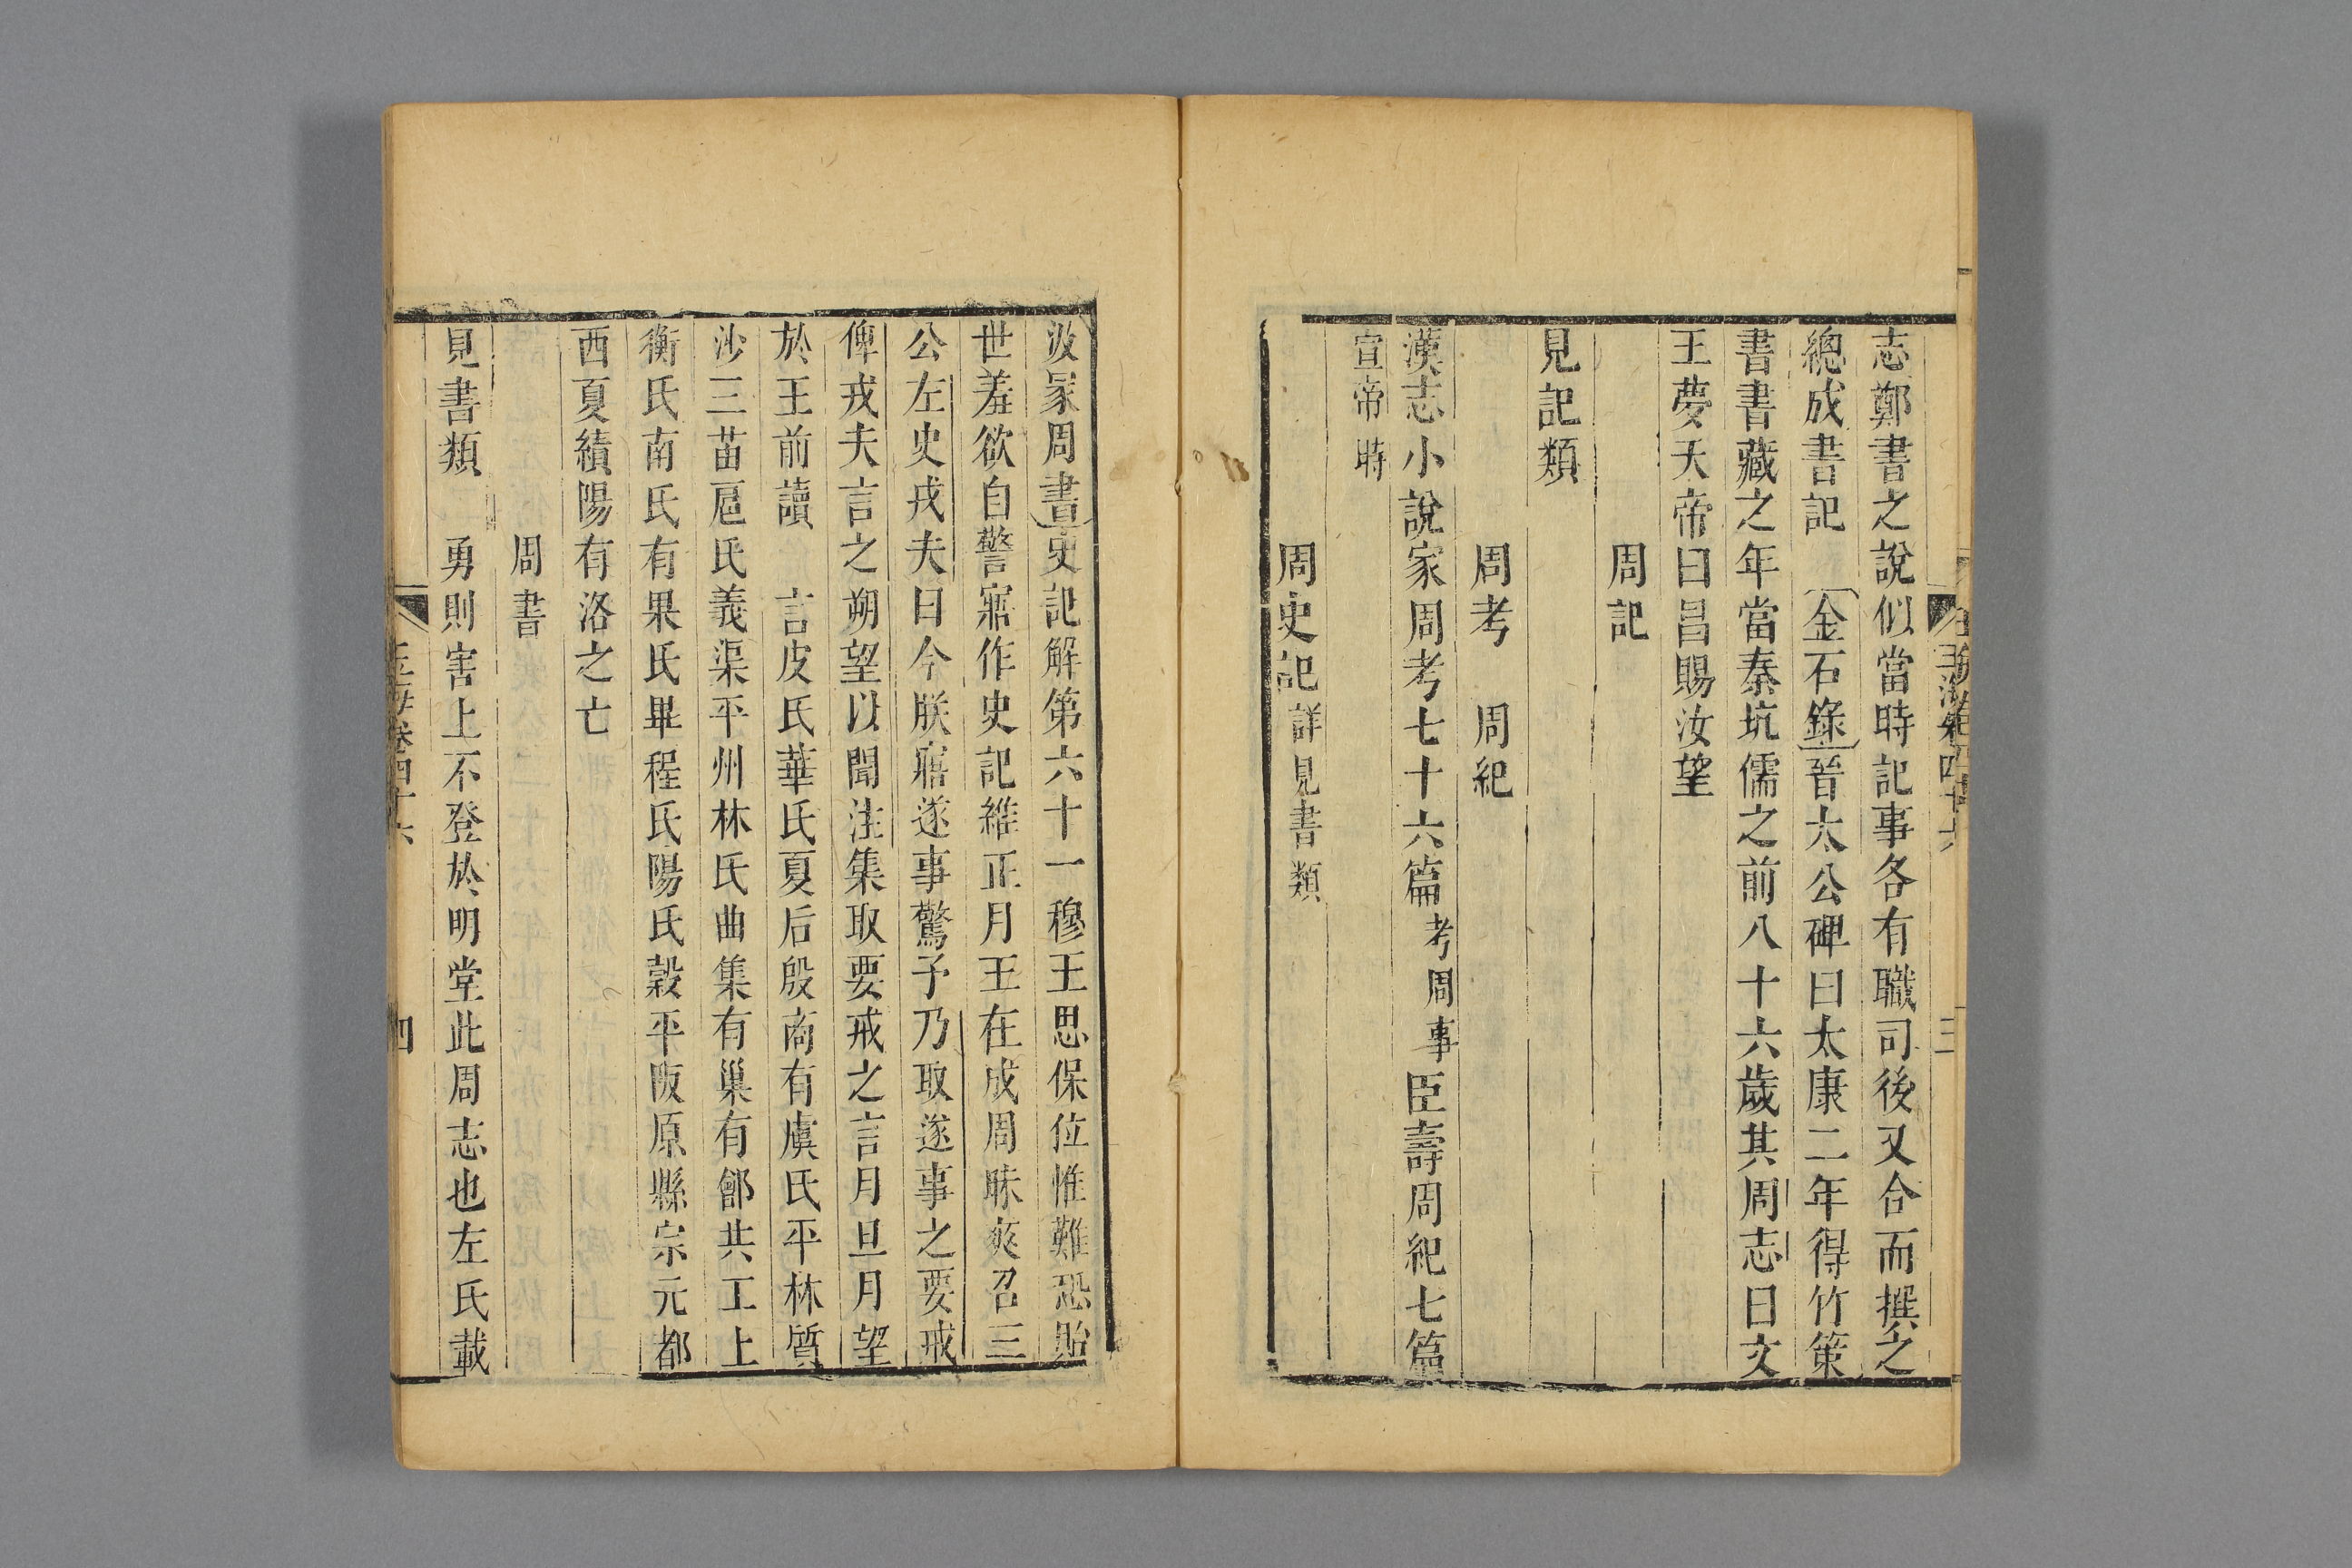 志鄭書之說似當時記事各有職司後又合而撰之
總成書記 金石錄晉太公碑曰太康二年得竹策
書書藏之年當秦坑儒之前八十六歲其周志曰文
王夢天帝曰昌賜汝望
周記
見記類
周考 周紀
漢志小說家周考七十六篇考周事臣壽周紀七篇
宣帝時
周史記詳見書類
汲冢周書史記解第六十一穆王思保位惟難恐貽
世羞欲自警寤作史記維正月王在成周昧爽召三
公左史戎夫曰今朕寤遂事驚予乃取遂事之要戒
俾戎夫言之朔望以聞注集取要戒之言月旦月望
於王前讀 言皮氏華氏夏后殷商有虞氏平林質
沙三苗扈氏義渠平州林氏曲集有巢有鄶共工上
衡氏南氏有果氏畢程氏陽氏穀平阪原縣宗元都
西夏績陽有洛之亡
周書
見書類 勇則害上不登於明堂此周志也左氏載
玉海卷四十六
四